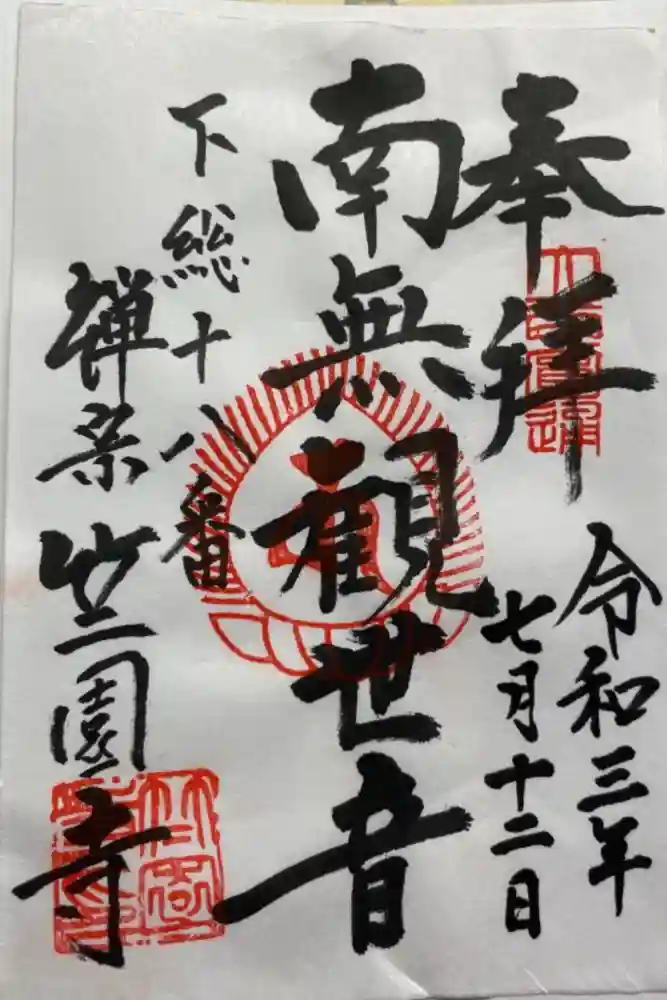 奉拝
令和三年
七月十二日
南無観世音
下総十八番
禅宗
竺園寺